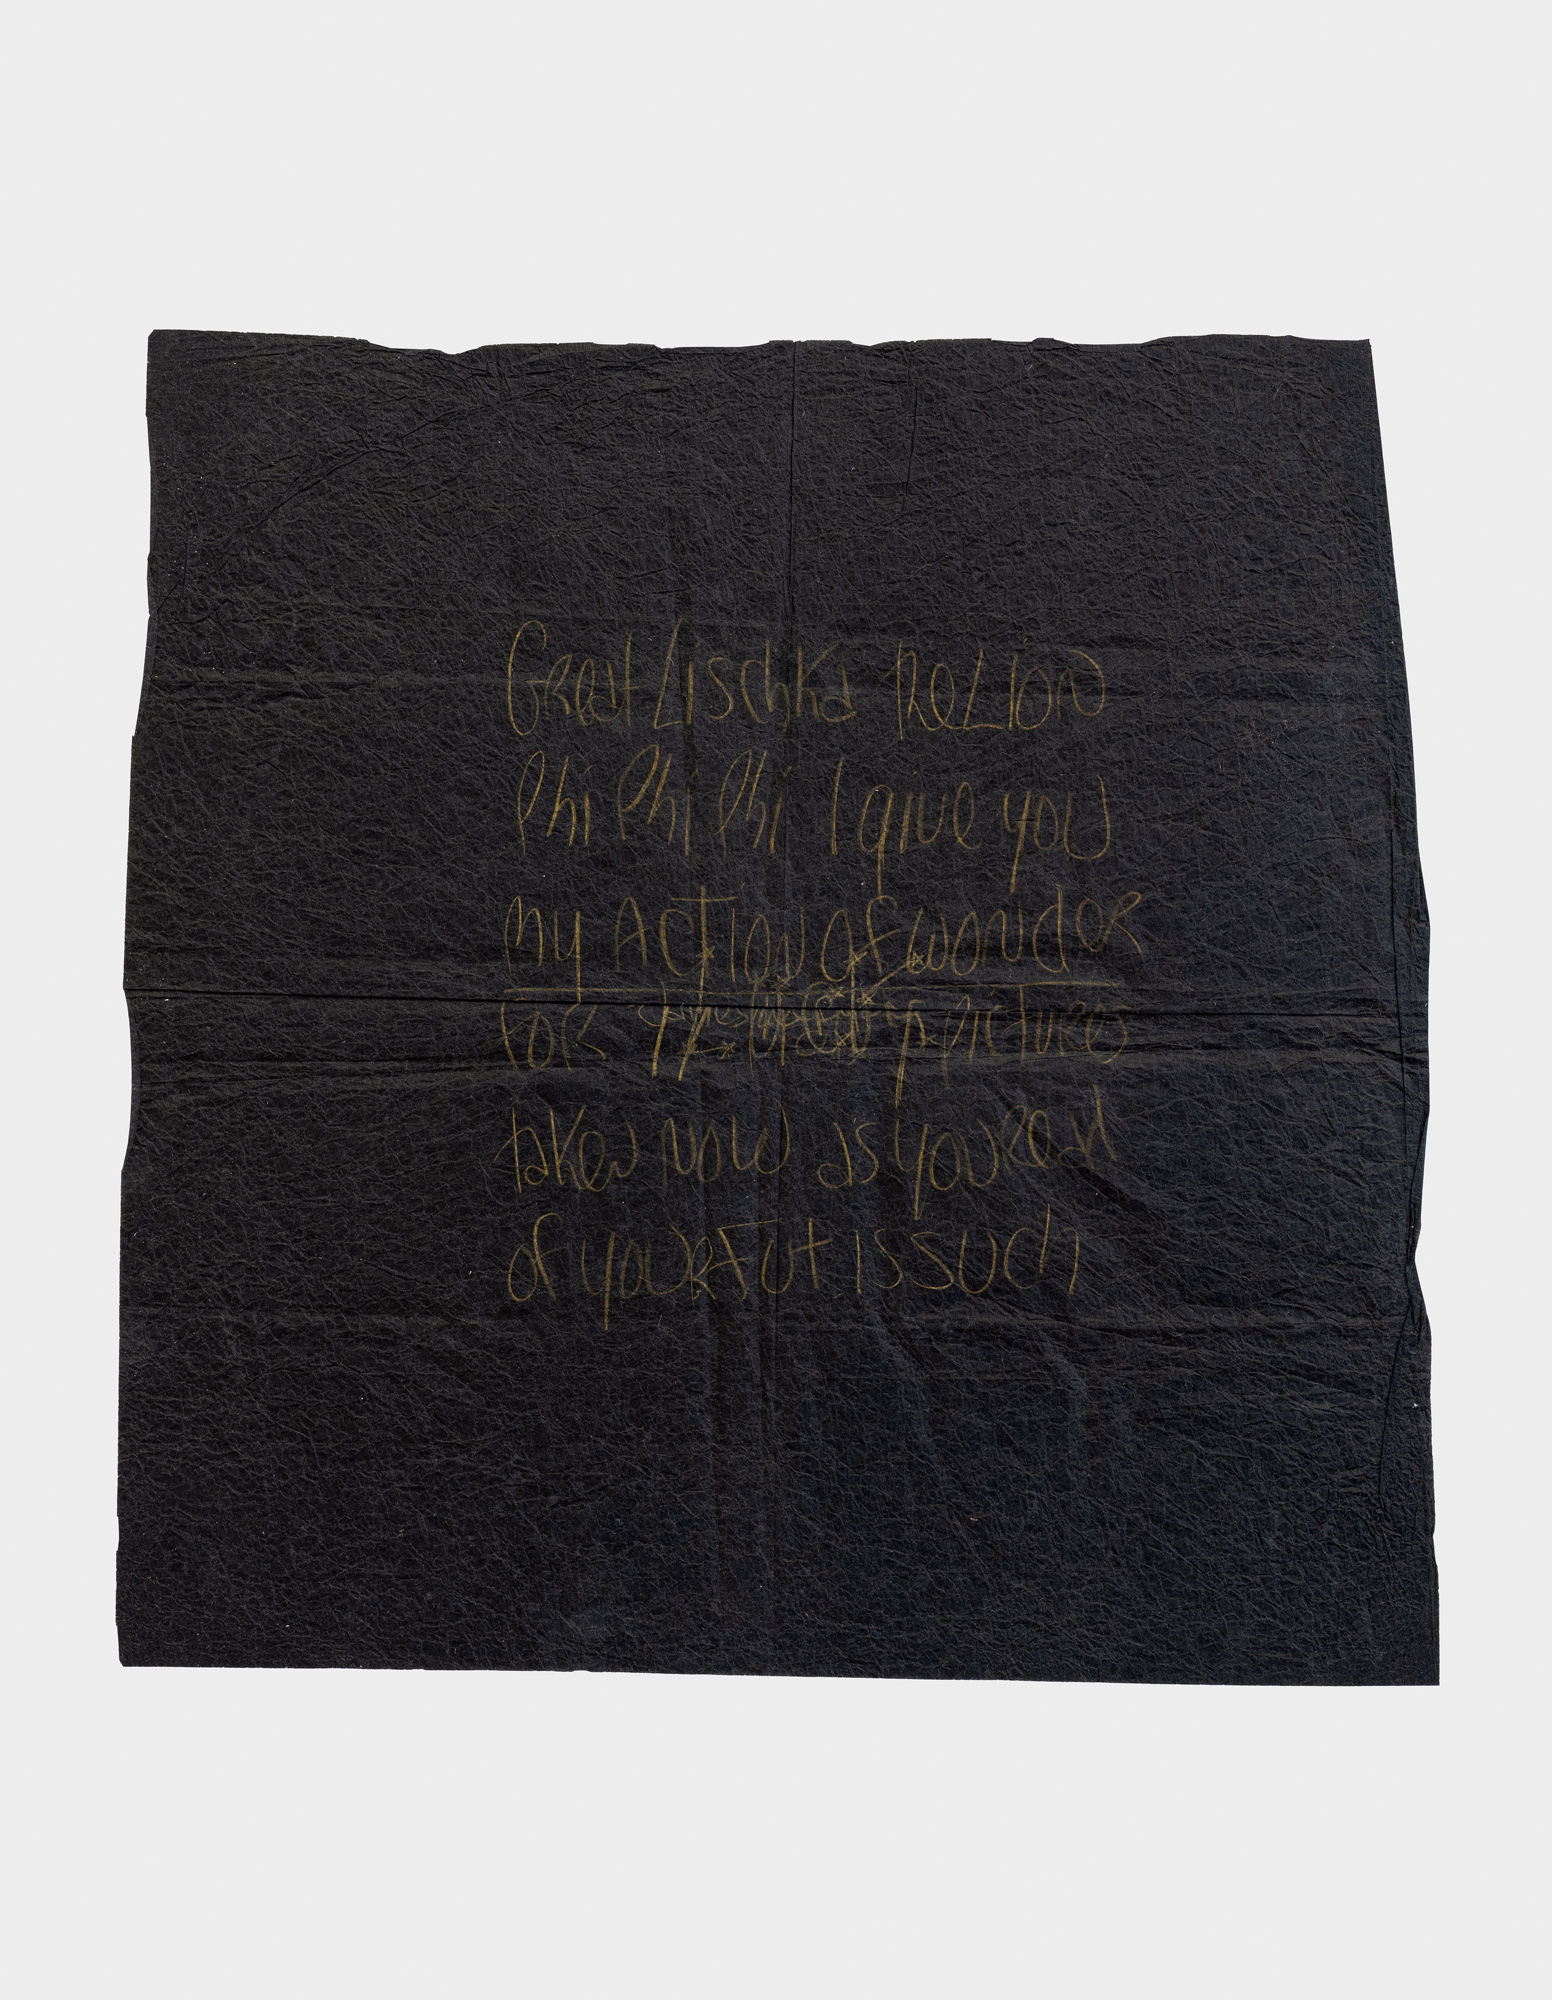 Great Lischka ReLion
Phi Phi Phi I give you
my ACTION of wonder
FOR pictures
taken now as you Read
of youR Fut is such